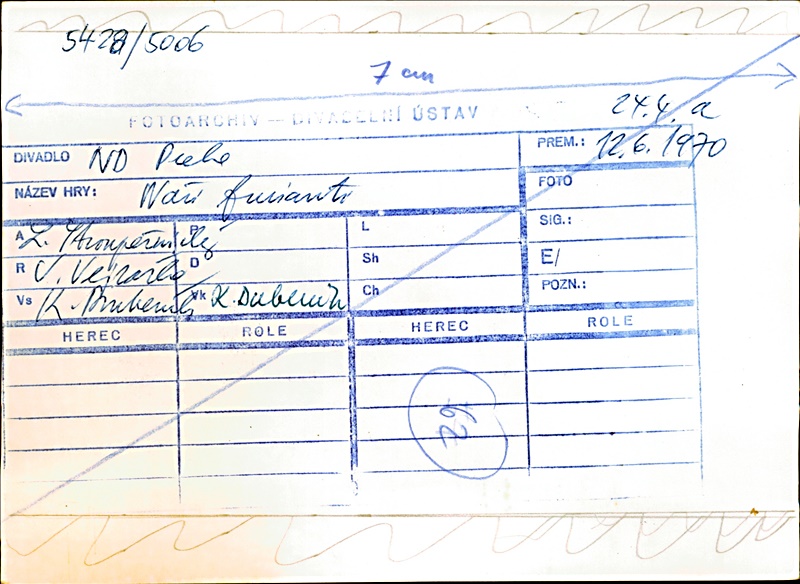 5428/5006
7 cm
FOTOARCHIV — DIVADELNÍ ÚSTAV
24.4. a
DIVADLO ND Praha PREM.: 12.6.1970
NÁZEV HRY: Naši furianti FOTO
A L. Stroupežnický P L SIG.:
R D Sh E/
Vs K. Dubeník Vk K. Dubeník Ch POZN.:
HEREC ROLE HEREC ROLE
62